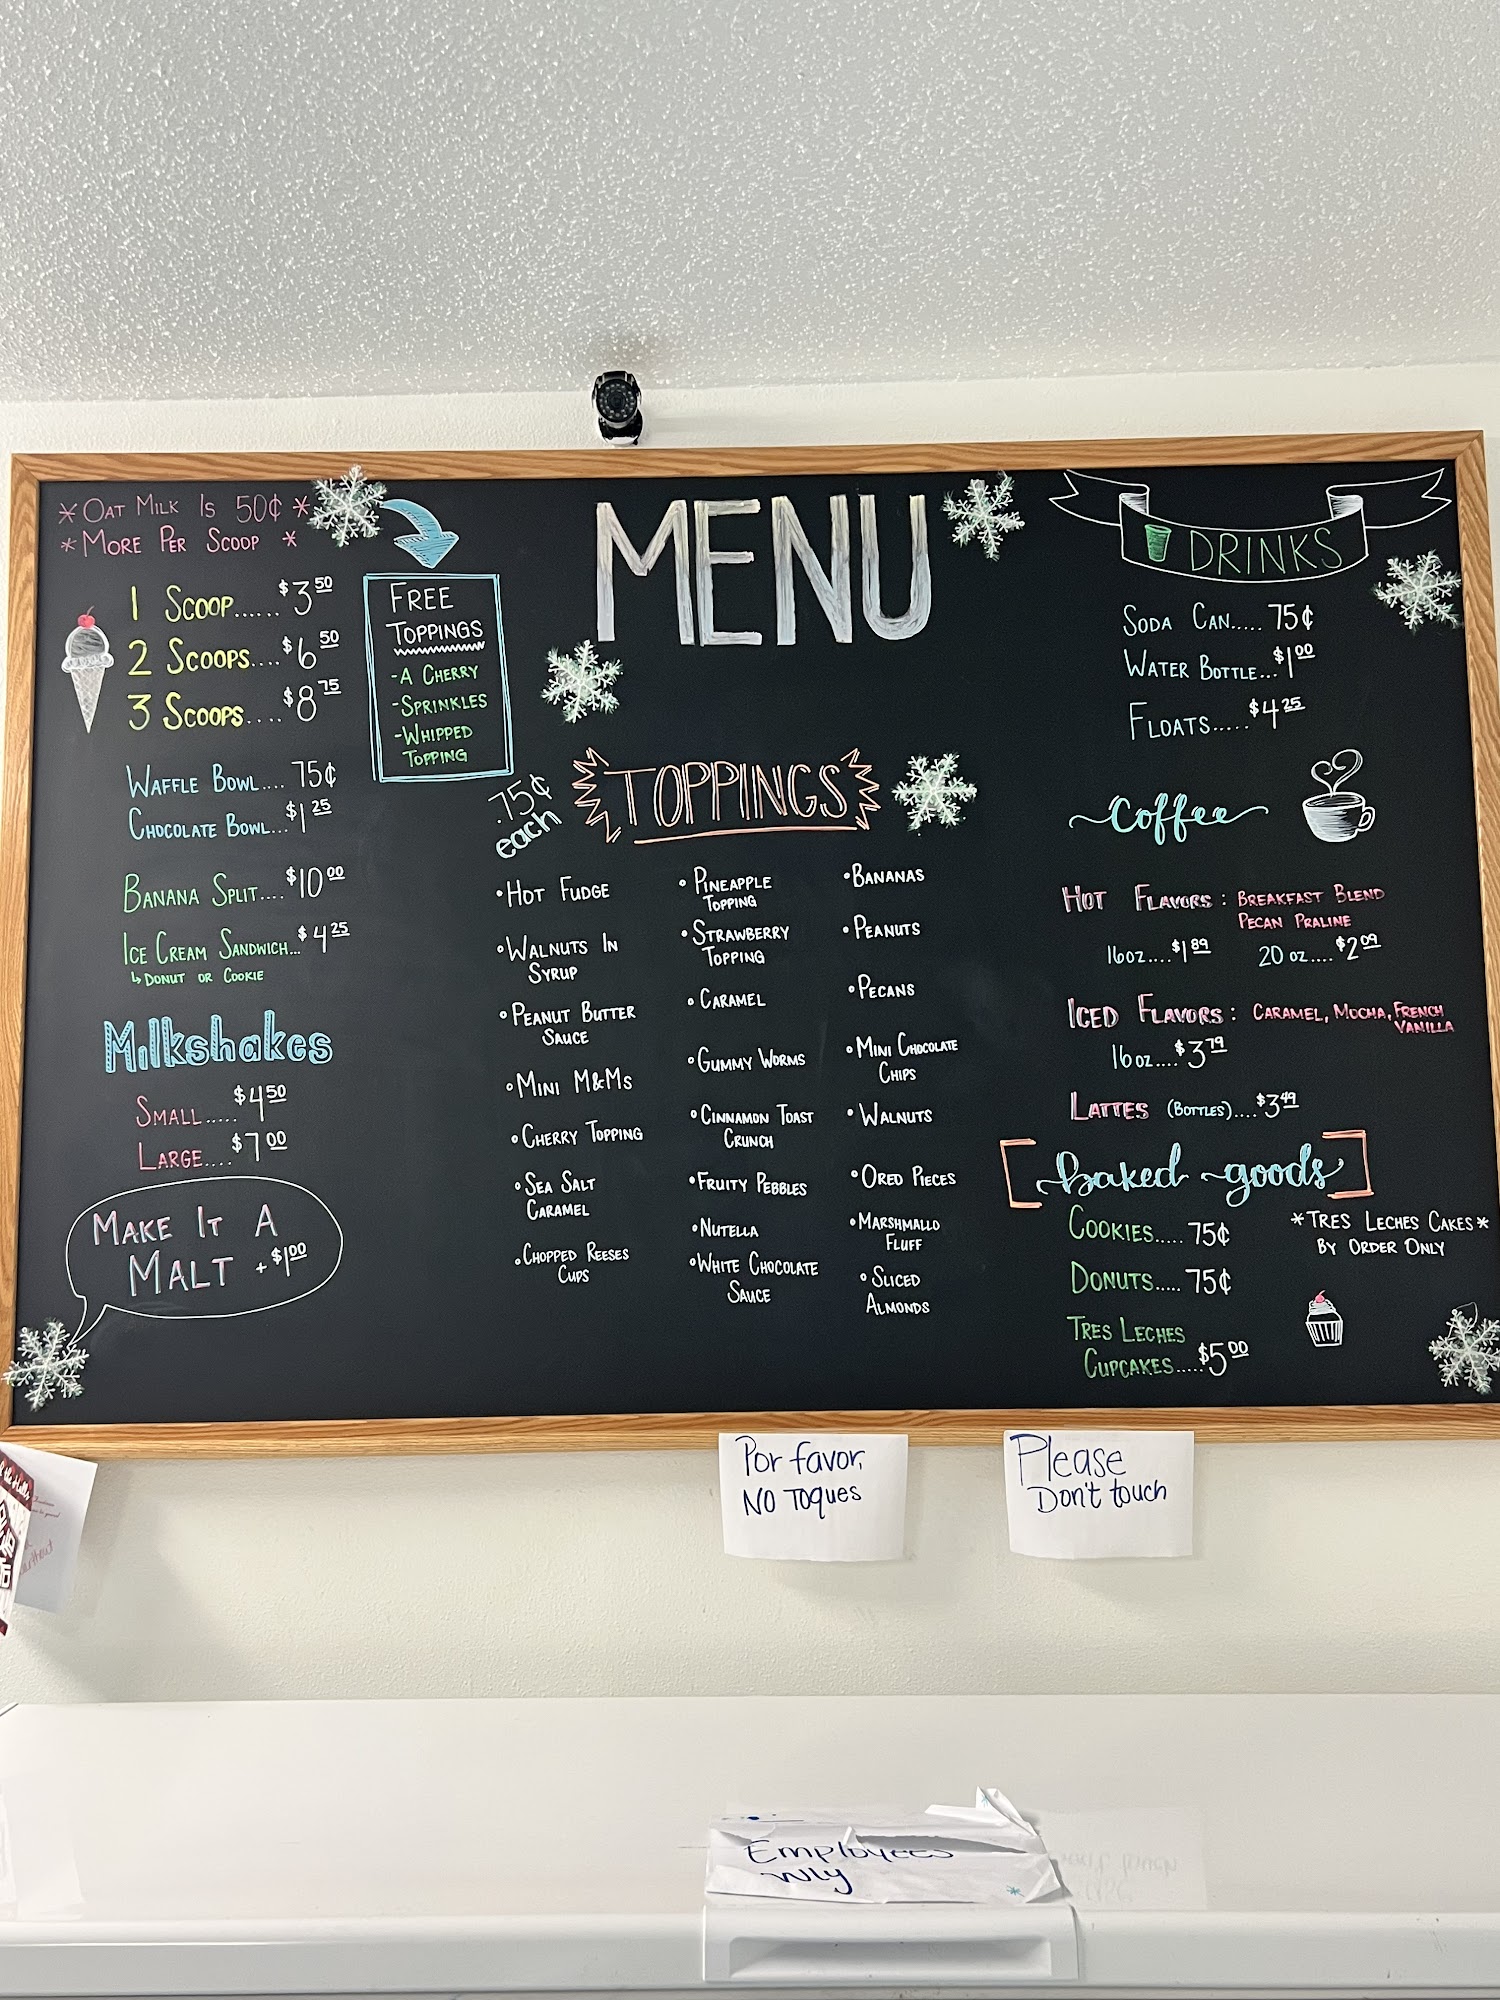 *Oat Milk Is 50¢ *
*More Per Scoop *
1 Scoop......$3.50
2 Scoops....$6.50
3 Scoops....$8.75
Waffle Bowl.... 75¢
Chocolate Bowl...$1.25
Banana Split....$10.00
Ice Cream Sandwich...$4.25
↳ Donut or Cookie
Milkshakes
Small.....$4.50
Large....$7.00
Make It A
Malt +$1.00
Free
Toppings
-A Cherry
-Sprinkles
-Whipped
Topping
MENU
.75¢
each
TOPPINGS
•Hot Fudge
•Walnuts In
Syrup
•Peanut Butter
Sauce
•Mini M&Ms
•Cherry Topping
•Sea Salt
Caramel
•Chopped Reeses
Cups
•Pineapple
Topping
•Strawberry
Topping
•Caramel
•Gummy Worms
•Cinnamon Toast
Crunch
•Fruity Pebbles
•Nutella
•White Chocolate
Sauce
•Bananas
•Peanuts
•Pecans
•Mini Chocolate
Chips
•Walnuts
•Oreo Pieces
•Marshmallo
Fluff
•Sliced
Almonds
DRINKS
Soda Can..... 75¢
Water Bottle...$1.00
Floats.....$4.25
Coffee
Hot Flavors: Breakfast Blend
Pecan Praline
16oz....$1.89 20 oz....$2.09
Iced Flavors: Caramel, Mocha, French
Vanilla
16oz....$3.79
Lattes (Bottles)....$3.49
baked goods
Cookies..... 75¢
Donuts..... 75¢
Tres Leches
Cupcakes.....$5.00
*Tres Leches Cakes*
By Order Only
Por favor,
NO Toques
Please
Don't touch
Employees
only